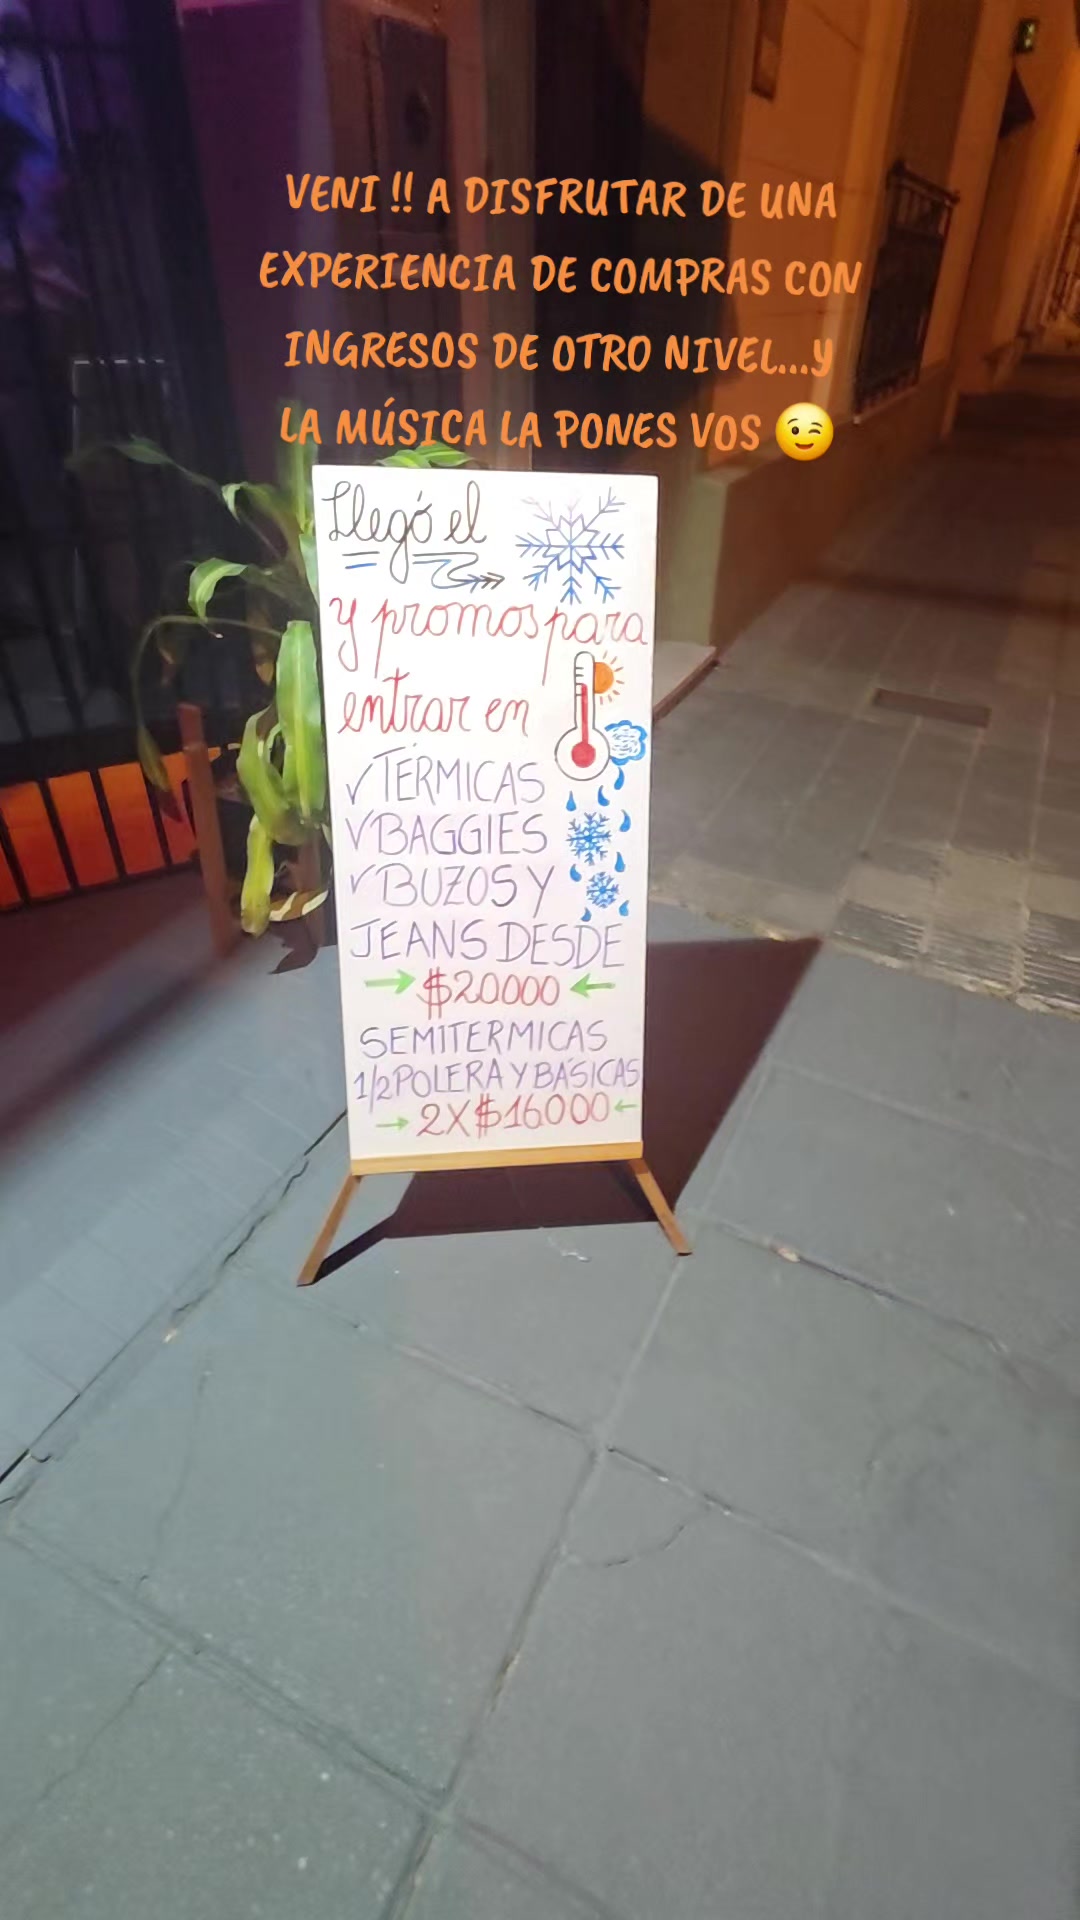 VENI !! A DISFRUTAR DE UNA
EXPERIENCIA DE COMPRAS CON
INGRESOS DE OTRO NIVEL...Y
LA MÚSICA LA PONES VOS 😉
Llegó el
y promos para
entrar en
✓TÉRMICAS
✓BAGGIES
✓BUZOS Y
JEANS DESDE
→ $20000 ←
SEMITERMICAS
1/2 POLERA Y BÁSICAS
→ 2X$16000 ←